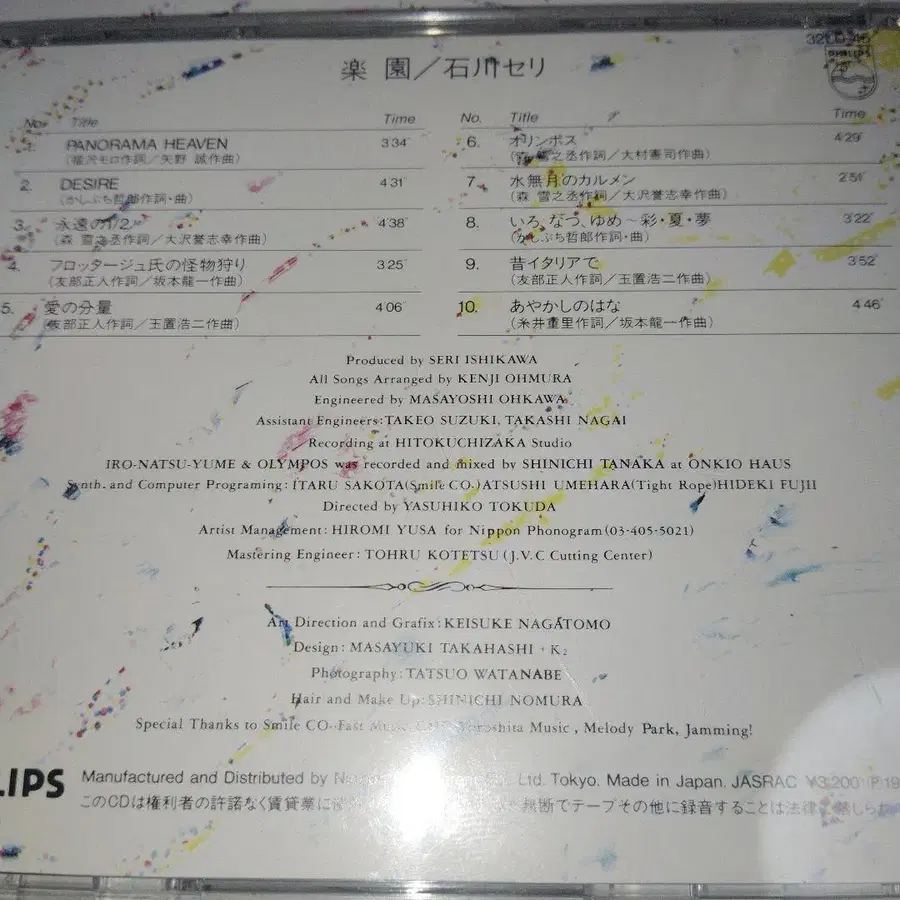 32LD-46
PHILIPS
楽園／石川セリ
No. Title Time
1. PANORAMA HEAVEN 3'34"
(福沢モロ作詞／矢野 誠作曲)
2. DESIRE 4'31"
(かしぶち哲郎作詞・曲)
3. 永遠の1/2 4'38"
(森 雪之丞作詞／大沢誉志幸作曲)
4. フロッタージュ氏の怪物狩り 3'25"
(友部正人作詞／坂本龍一作曲)
5. 愛の分量 4'06"
(友部正人作詞／玉置浩二作曲)
No. Title Time
6. オリンポス 4'29"
(森 雪之丞作詞／大村憲司作曲)
7. 水無月のカルメン 2'51"
(森 雪之丞作詞／大沢誉志幸作曲)
8. いろ、なつ、ゆめ〜彩・夏・夢 3'22"
(かしぶち哲郎作詞・曲)
9. 昔イタリアで 3'52"
(友部正人作詞／玉置浩二作曲)
10. あやかしのはな 4'46"
(糸井重里作詞／坂本龍一作曲)
Produced by SERI ISHIKAWA
All Songs Arranged by KENJI OHMURA
Engineered by MASAYOSHI OHKAWA
Assistant Engineers:TAKEO SUZUKI, TAKASHI NAGAI
Recording at HITOKUCHIZAKA Studio
IRO-NATSU-YUME & OLYMPOS was recorded and mixed by SHINICHI TANAKA at ONKIO HAUS
Synth. and Computer Programing: ITARU SAKOTA(Smile CO.)ATSUSHI UMEHARA(Tight Rope)HIDEKI FUJII
Directed by YASUHIKO TOKUDA
Artist Management: HIROMI YUSA for Nippon Phonogram(03-405-5021)
Mastering Engineer: TOHRU KOTETSU(J.V.C Cutting Center)
Art Direction and Grafix: KEISUKE NAGATOMO
Design: MASAYUKI TAKAHASHI + K₂
Photography: TATSUO WATANABE
Hair and Make Up: SHINICHI NOMURA
Special Thanks to Smile CO. Fast Music, Music, Melody Park, Jamming!
LIPS Manufactured and Distributed by Ltd. Tokyo. Made in Japan. JASRAC ¥3,200 P19
このCDは権利者の許諾なく賃貸業に 無断でテープその他に録音することは法律